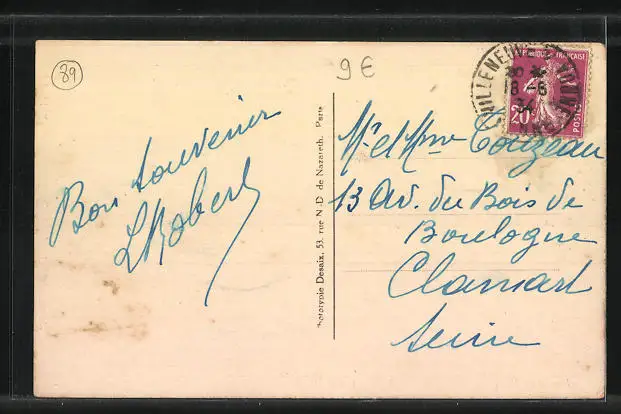 89
9 €
Bon souvenir
L Robert
Phototypie Desaix, 53, rue N.-D. de Nazareth. Paris
RÉPUBLIQUE FRANÇAISE
20c
POSTES
18-6
34
Mr et Mme Touzeau
13 Av. du Bois de
Boulogne
Clamart
Seine